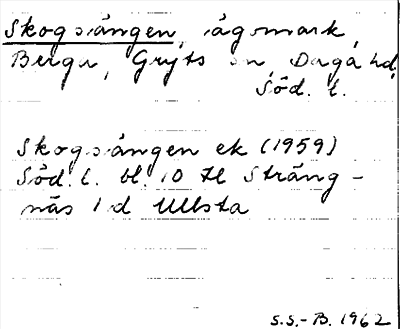 Skogsängen, ägomark,
Berga, Gryts sn, Daga hd,
Söd. l.
Skogsängen ek (1959)
Söd. l. bl. 10 till Sträng-
näs 1d Ullsta
S.S.-B. 1962